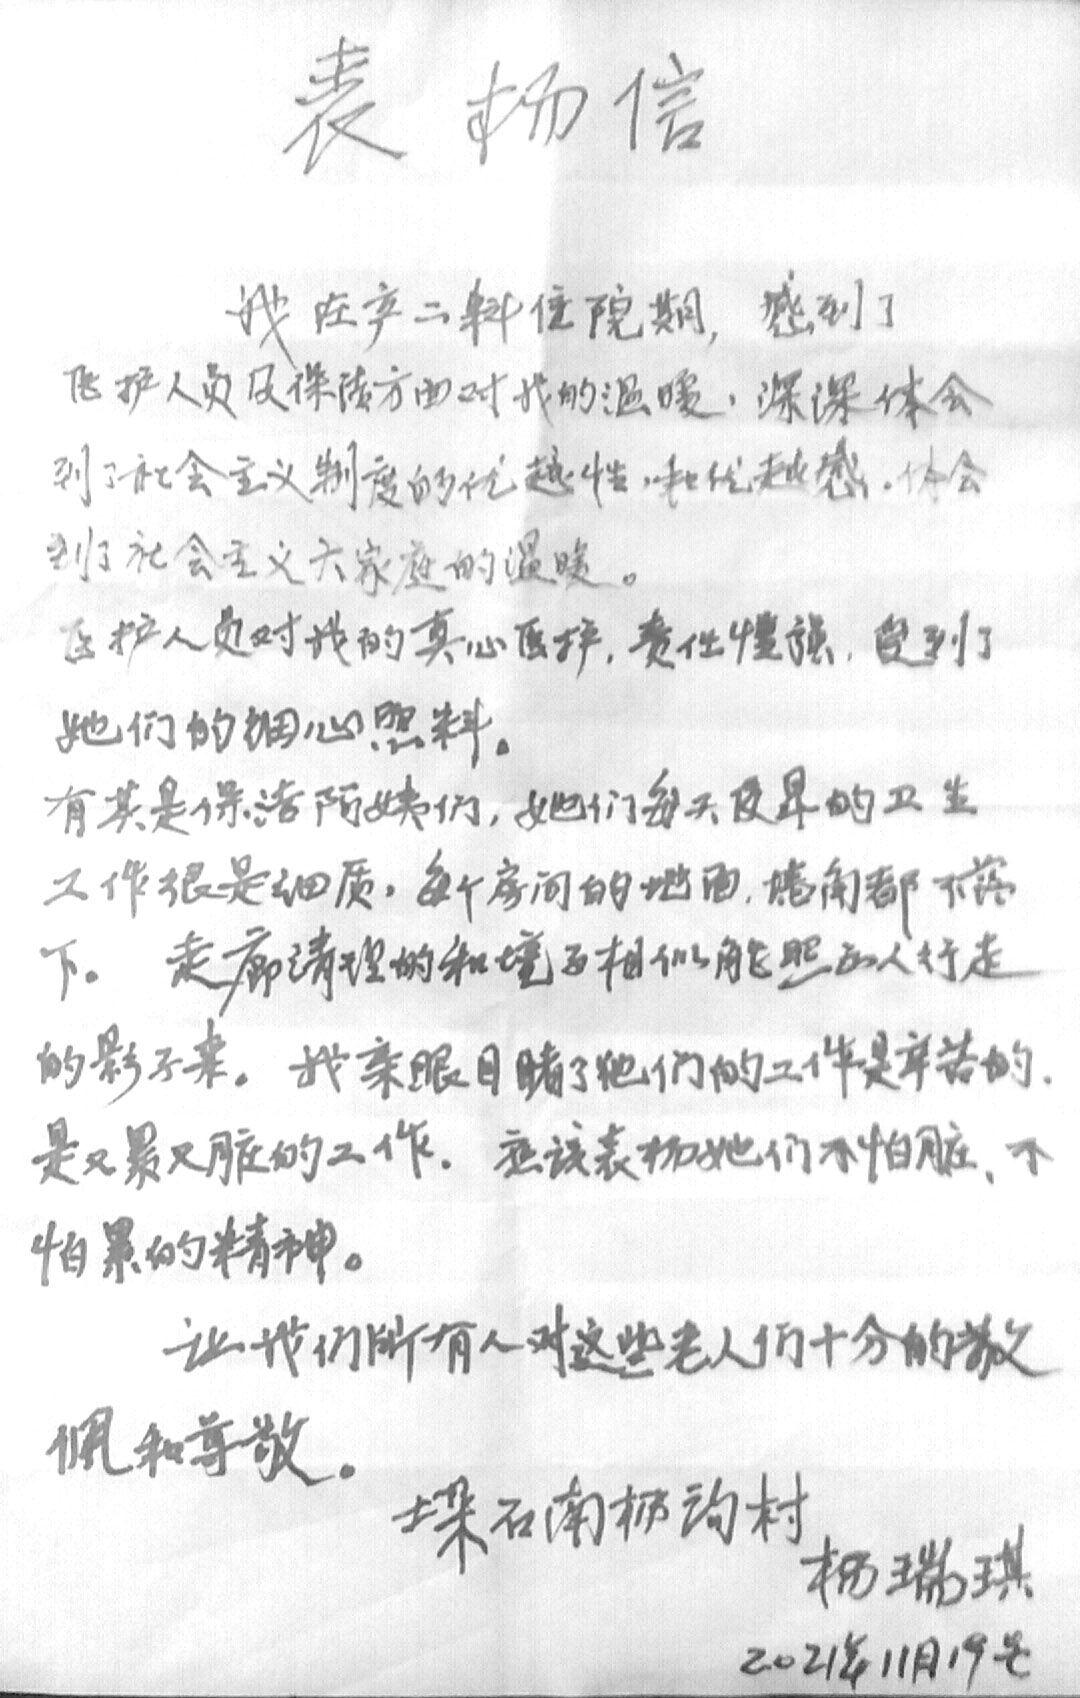 表扬信
我在产二科住院期，感到了
医护人员及保洁方面对我的温暖，深深体会
到了社会主义制度的优越性，和优越感，体会
到了社会主义大家庭的温暖。
医护人员对我的真心医护，责任慬强，受到了
她们的细心照料。
有其是保洁阿姨们，她们每天及早的卫生
工作很是细质，每个房间的地面，墙角都不落
下。走廊清理的和境子相似能照出人行走
的影子来。我亲眼目睹了他们的工作是辛苦的，
是又累又脏的工作，应该表扬她们不怕脏、不
怕累的精神。
让我们所有人对这些老人们十分的敬
佩和尊敬。
垛石南杨沟村
杨瑞琪
2021年11月19号